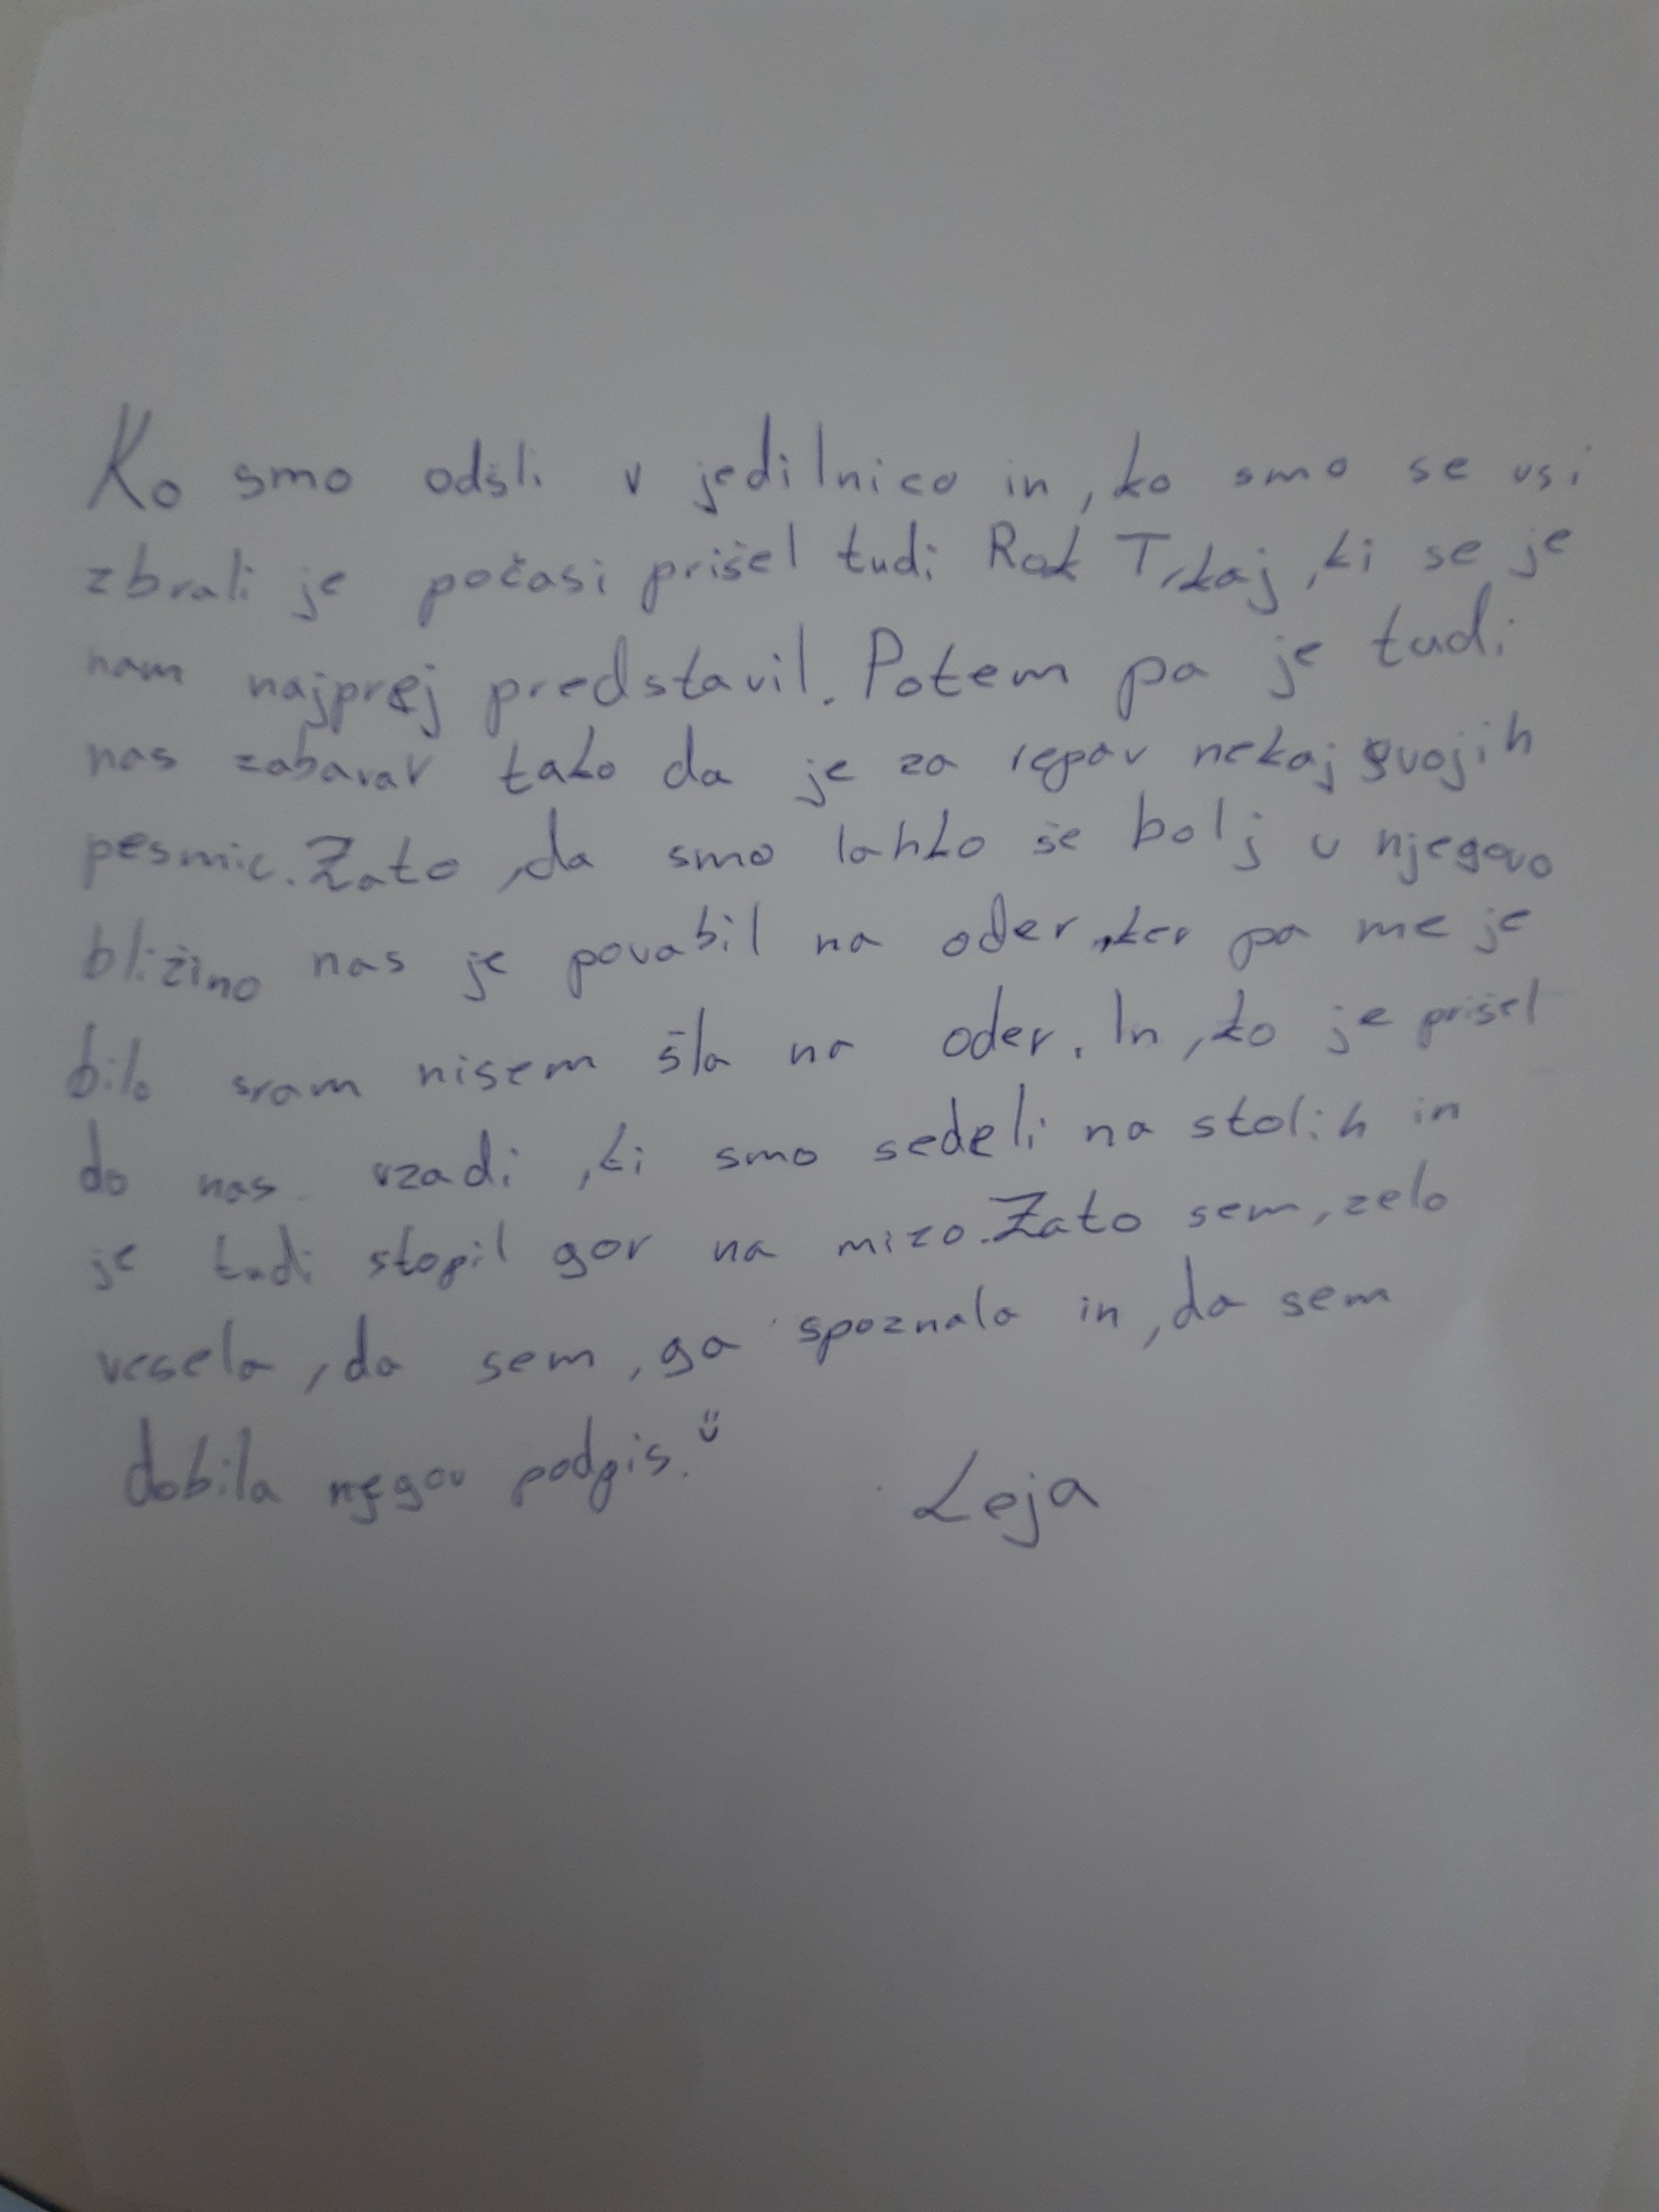 Ko smo odšli v jedilnico in, ko smo se vsi
zbrali je počasi prišel tudi Rok Trkaj, ki se je
nam najprej predstavil. Potem pa je tudi
nas zabaval tako da je za repav nekaj svojih
pesmic. Zato, da smo lahko še bolj v njegovo
bližino nas je povabil na oder, ker pa me je
bilo sram nisem šla na oder. In, ko je prišel
do nas vzadi, ki smo sedeli na stolih in
je tudi stopil gor na mizo. Zato sem, zelo
vesela, da sem, ga spoznala in, da sem
dobila njegov podpis. ü
Leja